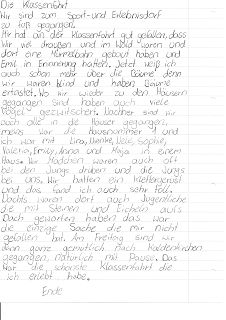 Die Klassenfahrt
Wir sind zum Sport-und Erlebnisdorf
zu fuß gegangen.
Mir hat an der Klassenfahrt gut gefallen, dass
Wir viel draußen und im Wald waren und
dort eine Murmelbahn gebaut haben und
Emil in Erinnerung hatten. Jetzt weiß ich
auch schon mehr über die Bäume denn
wir waren blind und haben Bäume
ertastet. Als wir wieder zu den Häusern
gegangen sind haben auch viele
Vögel gezwitschert. Nachher sind wir
auch alle in die Häuser gegangen,
meins war die Hausnummer 4 und
ich war mit Lina, Wenke, Lele, Sophie,
Valeria, Emily, Jana und Maja in einem
Haus. Wir Mädchen waren auch oft
bei den Jungs drüben und die Jungs
bei uns. Wir hatten ein Kletterwerkst
und das fand ich auch sehr toll.
Nachts waren dort auch Jugentliche
die mit Steinen und Eicheln aufs
Dach geworfen haben das war
die einzige Sache die mir nicht
gefallen hat. Am Freitag sind wir
dann ganz gemütlich nach Kaldenkirchen
gegangen, natürlich mit Pause. Das
War die schönste Klassenfahrt die
ich erlebt habe.
Ende